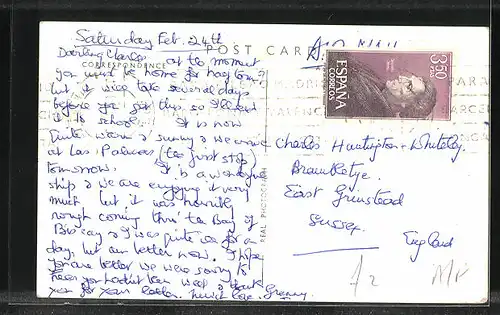 Saturday Feb. 24th
POST CARD
AIR MAIL
CORRESPONDENCE
Darling Charles
at the moment
you must be home for
but it will take several days
before you get this, so I'll send
it to school. It is now
quite warm & sunny & we arrive
at Las Palmas (the first stop)
tomorrow. It is a wonderful
ship & we are enjoying it very
much but it was horribly
rough coming thro' the Bay of
Biscay & I was quite for a
day, but am better now. I hope
you are better we were sorry to
hear you hadn't been well & thank
you for your letter. much love. Granny
REAL PHOTOGRAPH
ESPAÑA
CORREOS
3,50
PTAS
Charles Huntington-Whiteley
Brambletye
East Grinstead
Sussex
England